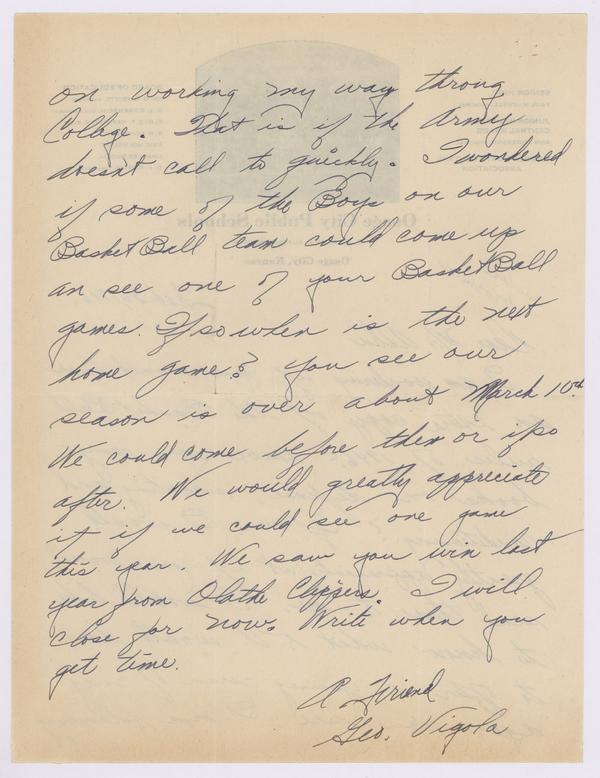 on working my way throug
College. That is if the Army
doesnt call to quickly. I wondered
if some of the Boys on our
BasketBall team could come up
an see one of your BasketBall
games. If so when is the next
home game? You see our
season is over about March 10th
We could come before then or if so
after. We would greatly appreciate
it if we could see one game
this year. We saw you win last
year from Olathe Clippers. I will
close for now. Write when you
get time.
A Friend
Geo. Vigola